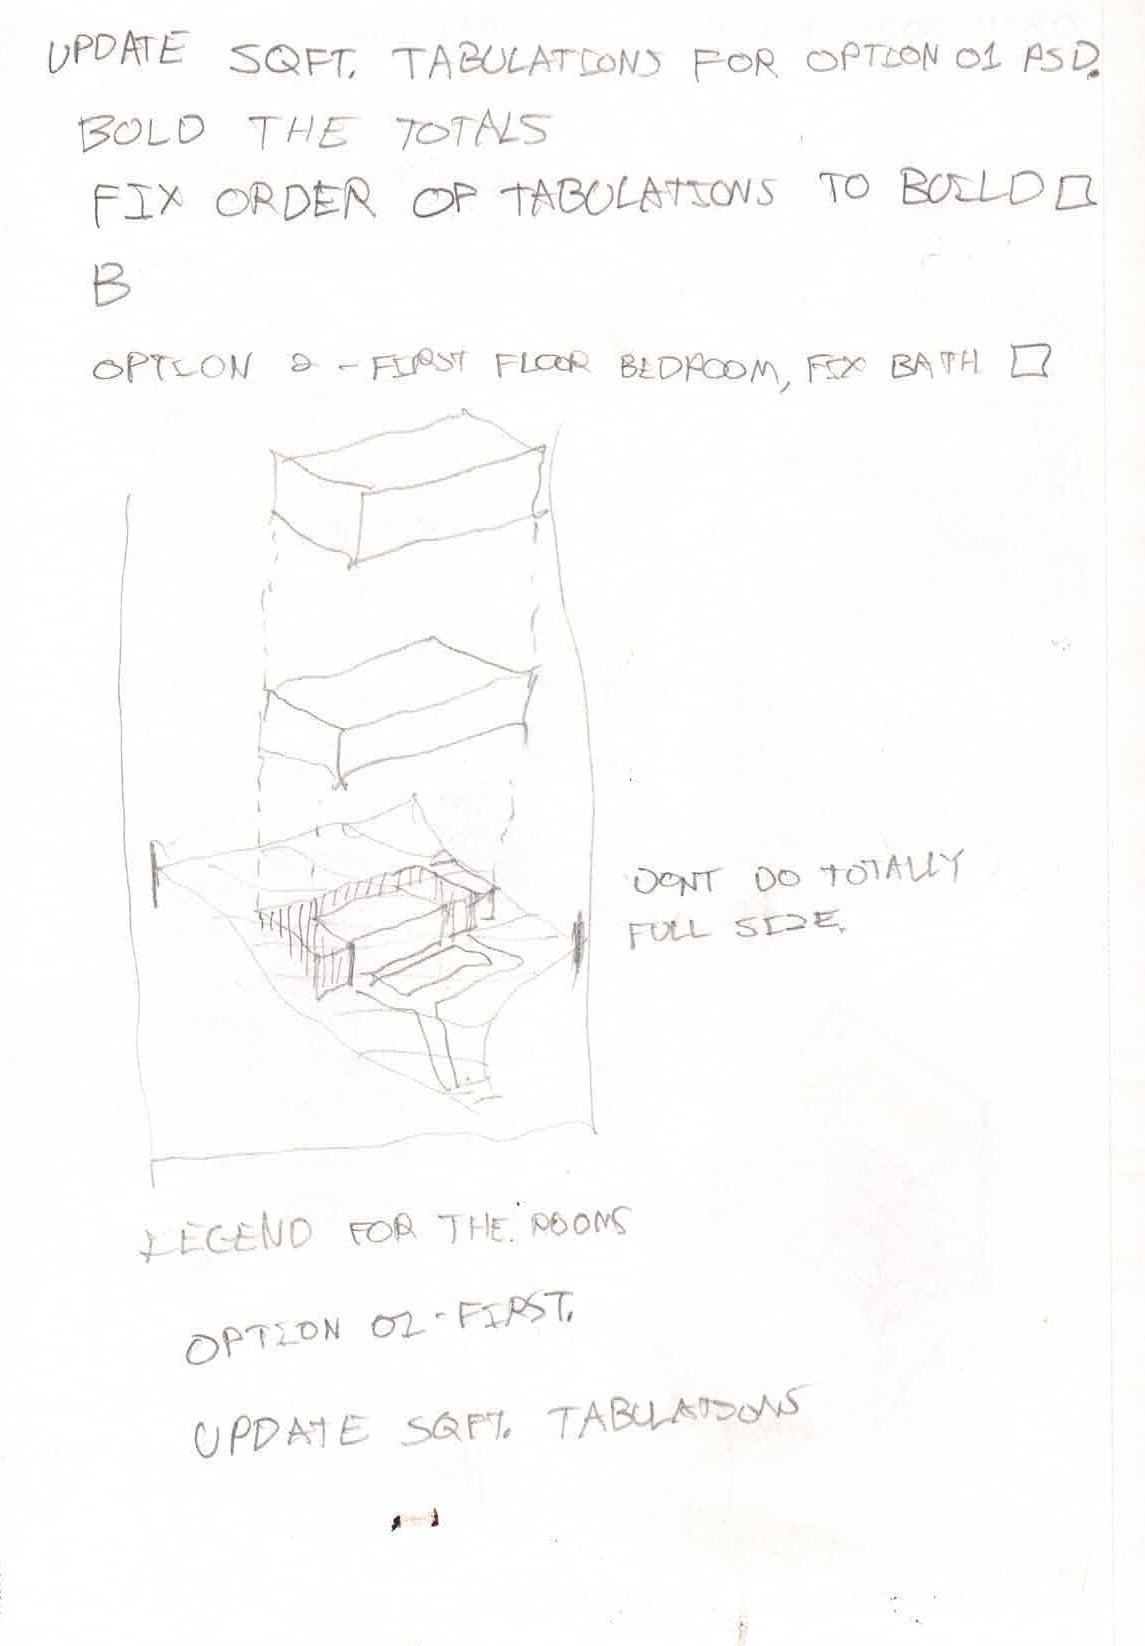 UPDATE SQFT. TABULATIONS FOR OPTION 01 PSD.
BOLD THE TOTALS
FIX ORDER OF TABULATIONS TO BUILD
B
OPTION 2 - FIRST FLOOR BEDROOM, FIX BATH
DONT DO TOTALLY
FULL SIZE.
LEGEND FOR THE ROOMS
OPTION 02 - FIRST.
UPDATE SQFT. TABULATIONS